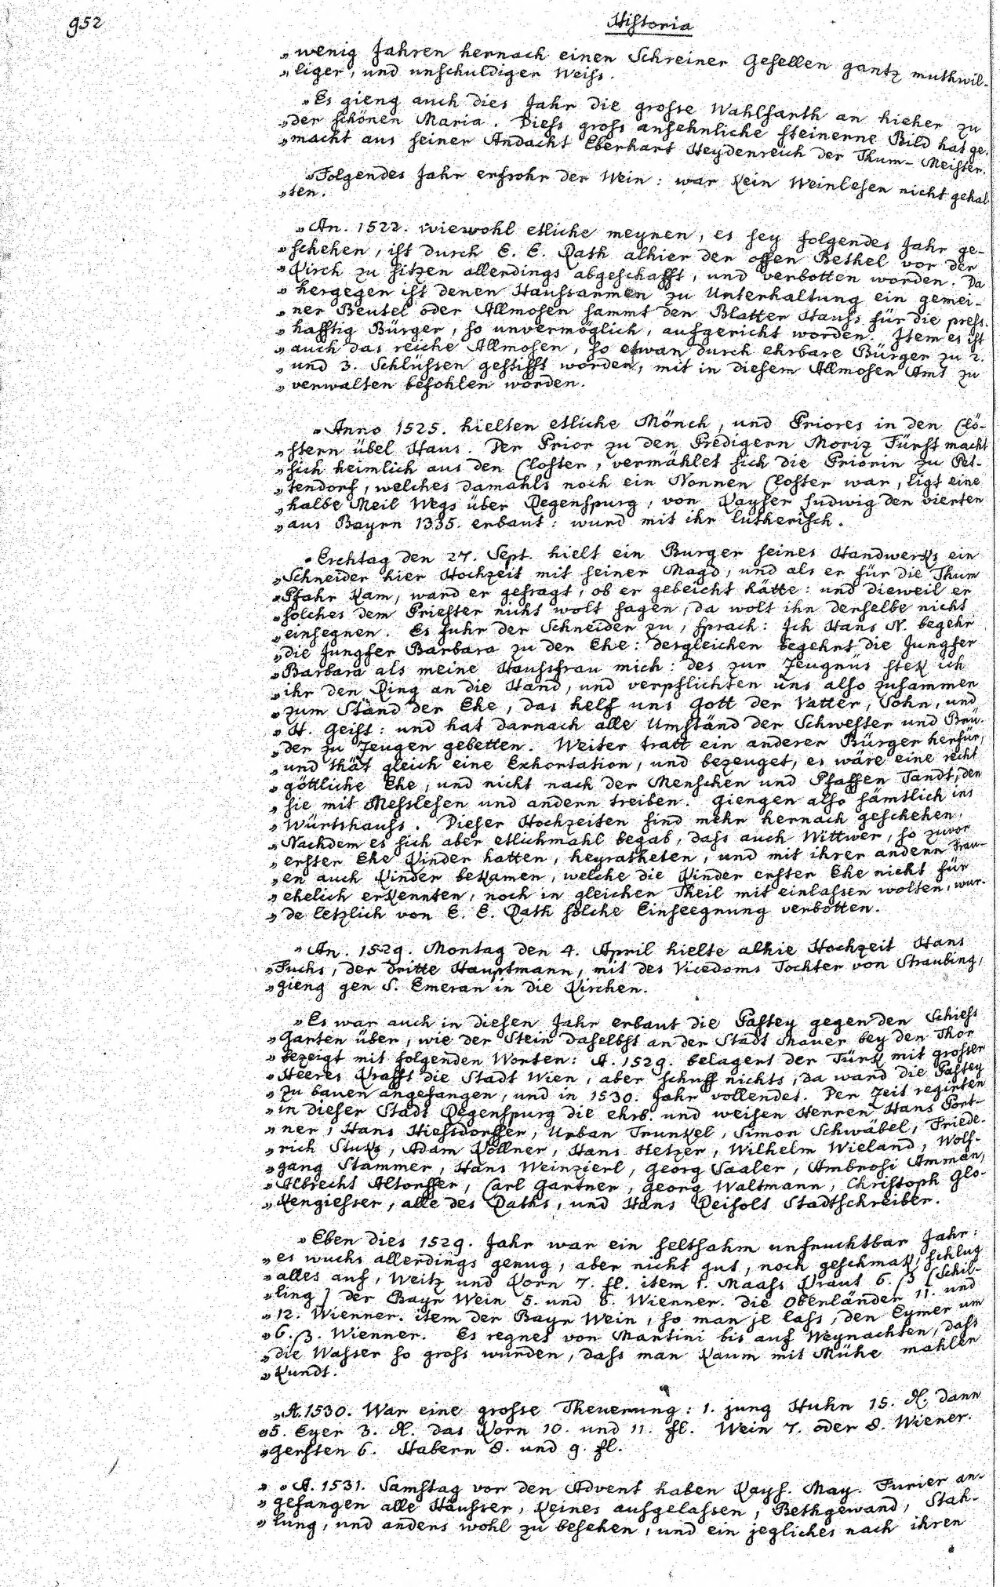 952
Historia
„wenig Jahren hernach einen Schreiner Gesellen gantz muthwil-
„liger, und unschuldiger Weiss.
„Es gieng auch dies Jahr die grosse Wahlfarth an hieher zu
„der schönen Maria. Diess gross ansehnliche steinerne Bild hat ge-
„macht aus seiner Andacht Eberhart Heydenreich der Thum-Meister.
„Folgendes Jahr erfrohr der Wein: war kein Weinlesen nicht gehal
„ten.
„An. 1522. wiewohl etliche meynen, es sey folgendes Jahr ge-
„schehen, ist durch E. E. Rath alhier der offen Bethel vor der
„Kirch zu sitzen allerdings abgeschafft, und verbotten worden. Da
„hergegen ist denen Haussarmen zu Unterhaltung ein gemei-
„ner Beutel oder Allmosen sammt den Blatter Hauss für die press-
„hafftig Bürger, so unvermöglich, aufgericht worden. Item es ist
„auch das reiche Allmosen, so etwan durch ehrbare Bürger zu 2.
„und 3. Schlüssen gestifft worden, mit in diesem Allmosen Amt zu
„verwalten befohlen worden.
„Anno 1525. hielten etliche Mönch, und Priores in den Clö-
„stern übel Haus. Der Prior zu den Predigern Moriz Fürst macht
„sich heimlich aus den Closter, vermählet sich die Priorin zu Pet-
„tendorf, welches damahls noch ein Nonnen Closter war, ligt eine
„halbe Meil Wegs über Regenspurg, von Kayser Ludwig den vierten
„aus Bayrn 1335. erbaut: wurd mit ihr lutherisch.
„Erchtag den 27. Sept. hielt ein Burger seines Handwerks ein
„Schneider hier Hochzeit mit seiner Magd, und als er für die Thum
„Pfahr kam, ward er gefragt, ob er gebeicht hätte: und dieweil er
„solches dem Priester nicht wolt sagen, da wolt ihn derselbe nicht
„einsegnen. Es fuhr der Schneider zu, sprach: Ich Hans N. begehr
„die Jungfer Barbara zu der Ehe: desgleichen begehrt die Jungfer
„Barbara als meine Haussfrau mich: des zur Zeugnüs stek ich
„ihr den Ring an die Hand, und verpflichten uns also zusammen
„zum Ständ der Ehe, das helf uns Gott der Vatter, Sohn, und
„H. Geist: und hat darnach alle Umständ der Schwester und Brü-
„der zu Zeugen gebetten. Weiter tratt ein anderer Bürger herfür,
„und thät gleich eine Exhortation, und bezeuget, es wäre eine recht
„göttliche Ehe, und nicht nach der Menschen und Pfaffen Tandt, den
„sie mit Messlesen und andern treiben. Giengen also sämtlich ins
„Würtshauss. Dieser Hochzeiten sind mehr hernach geschehen.
„Nachdem es sich aber etlichmahl begab, dass auch Wittwer, so zuvor
„erster Ehe Kinder hatten, heyratheten, und mit ihrer andern Frau-
„en auch Kinder bekamen, welche die Kinder erster Ehe nicht für
„ehelich erkennten, noch in gleichen Theil mit einlassen wolten, wur-
„de letzlich von E. E. Rath solche Einseegnung verbotten.
„An. 1529. Montag den 4. April hielte alhie Hochzeit Hans
„Fuchs, der dritte Hauptmann, mit des Vicedoms Tochter von Straubing,
„gieng gen S. Emeran in die Kirchen.
„Es war auch in diesen Jahr erbaut die Pastey gegen den Schiess
„Garten über, wie der Stein daselbst an der Stadt Mauer bey den Thor
„bezeigt mit folgenden Worten: A. 1529. belagert der Türk mit grosser
„Heeres Krafft die Stadt Wien, aber schuff nichts, da ward die Pastey
„zu bauen angefangen, und in 1530. Jahr vollendet. Der Zeit regirten
„in dieser Stadt Regenspurg die ehrb. und weisen Herren Hans Port-
„ner, Hans Hiesdorffer, Urban Trunkel, Simon Schwäbel, Friede-
„rich Stuks, Adam Köllner, Hans Hetzer, Wilhelm Wieland, Wolf-
„gang Stammer, Hans Weinzierl, Georg Saaler, Ambrosi Amman,
„Albrecht Altorffer, Carl Gartner, Georg Waltmann, Christoph Glo-
„kengiesser, alle des Raths, und Hans Reisolt Stadtschreiber.
„Eben dies 1529. Jahr war ein seltsahm unfruchtbar Jahr:
„es wuchs allerdings genug, aber nicht gut, noch geschmak, schlug
„alles auf, Weitz und Korn 7. fl. item 1. Maass Kraut 6. ß (Schil-
„ling) der Bayr Wein 5. und 6. Wienner. die Obenländer 11. und
„12. Wienner. item der Bayr Wein, so man je lass, den Eymer um
„6. ß. Wienner. Es regnet von Martini bis auf Weynachten, dass
„die Wasser so gross wurden, dass man kaum mit Mühe mahlen
„kundt.
„A. 1530. War eine grosse Theuerung: 1. jung Huhn 15. ₰. dann
„5. Eyer 3. ₰. das Korn 10. und 11. fl. Wein 7. oder 8. Wiener.
„Gersten 6. Habern 8. und 9. fl.
„A. 1531. Samstag vor den Advent haben Kays. May. Furier an-
„gefangen alle Häusser, keines aufgelassen, Bethgewand, Stah-
„lung, und anders wohl zu besehen, und ein jegliches nach ihren